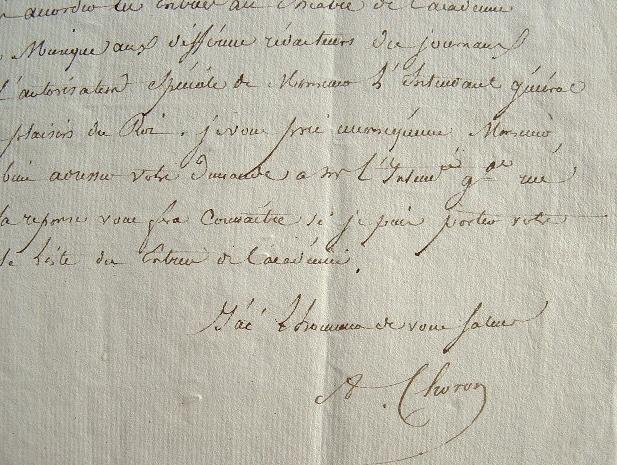 accorder les Entrées au Théâtre de l'académie
Musique aux différens rédacteurs des journaux
l'autorisation spéciale de Monsieur l'Intendant général
plaisirs du Roi. je vous prie Monsieur
votre demande a Mr l'Inten
la reponse vous fera Connaître si je puis porter votre
Liste des Entrées de l'académie.
J'ai l'honneur de vous saluer
A. Choron